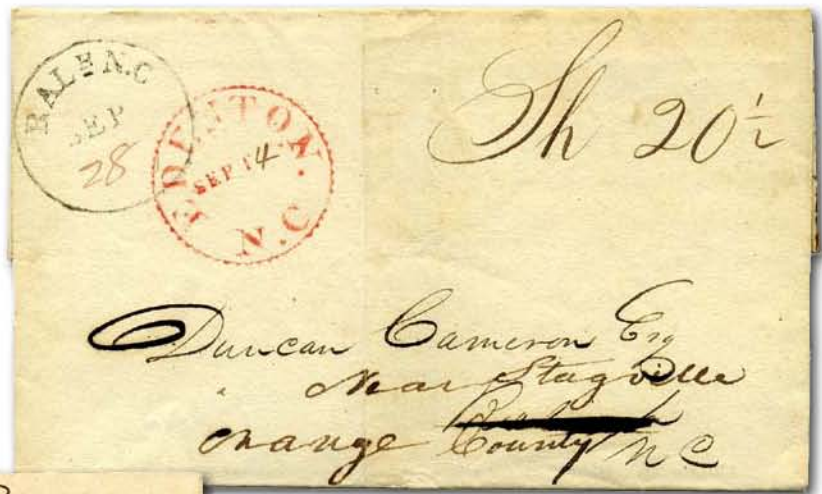 RALH N.C
SEP
28
EDENTON. N.C
SEP 14
Sh 20½
Duncan Cameron Esq
Near Stagville
Orange County N C